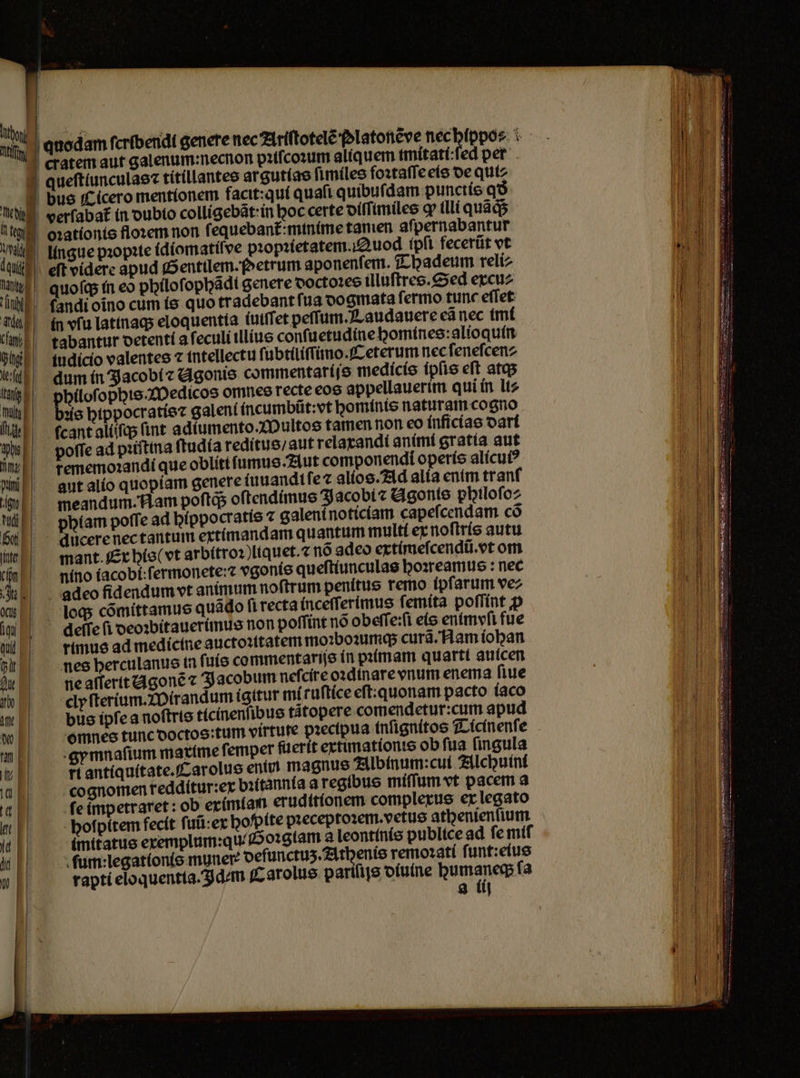 quodam ſcribendi genere nec Ariſtotelē Platonēve nec hippo⸗
cratem aut galenum:necnon priſcorum aliquem imitati:ſed per
queſtiunculas⁊ titillantes argutias ſimiles fortaſſe eis de qui⸗
bus Cicero mentionem facit:qui quaſi quibuſdam punctis qđ
verſabat̄ in dubio colligebāt:in hoc certe diſſimiles ꝙ illi quāꝗꝫ
orationis florem non ſequebant̄:minime tamen aſpernabantur
lingue proprie idiomatiſve proprietatem. Quod ipſi fecerūt vt
eſt videre apud Gentilem. Petrum aponenſem. Thadeum reli⸗
quoſqꝫ in eo philoſophādi genere doctores illuſtres. Sed excu⸗
ſandi oīno cum is quo tradebant ſua dogmata ſermo tunc eſſet
in vſu latinaqꝫ eloquentia iuiſſet peſſum. Laudauere eā nec imi
tabantur detenti a ſeculi illius conſuetudine homines:alioquin
iudicio valentes ⁊ intellectu ſubtiliſſimo. Ceterum nec ſeneſcen⸗
dum in Jacobi⁊ Ugonis commentarijs medicis ipſis eſt atqꝫ
philoſophis. Medicos omnes recte eos appellauerim qui in li⸗
bris hippocratis⁊ galeni incumbūt:vt hominis naturam cogno
ſcant alijſqꝫ ſint adiumento. Multos tamen non eo inficias dari
poſſe ad priſtina ſtudia reditus/aut relaxandi animi gratia aut
rememorandi que obliti ſumus. Aut componendi operis alicuiꝰ
aut alio quopiam genere iuuandi ſe ⁊ alios. Ad alia enim tranſ
meandum. Nam poſtꝗꝫ oſtendimus Jacobi ⁊ Ugonis philoſo⸗
phiam poſſe ad hippocratis ⁊ galeni noticiam capeſcendam cō
ducere nec tantum extimandam quantum multi ex noſtris autu
mant. Ex his(vt arbitror)liquet.⁊ nō adeo extimeſcendū.vt om
nino iacobi:ſermonete:⁊ vgonis queſtiunculas horreamus : nec
adeo fidendum vt animum noſtrum penitus remo ipſarum ve⸗
loqꝫ cōmittamus quādo ſi recta inceſſerimus ſemita poſſint ꝓ
deſſe ſi deorbitauerimus non poſſint nō obeſſe:ſi eis enimvſi fue
rimus ad medicine auctoritatem morborumqꝫ curā. Nam iohan
nes herculanus in ſuis commentarijs in primam quarti auicen
ne aſſerit Ugonē ⁊ Jacobum neſcire ordinare vnum enema ſiue
clyſterium. Mirandum igitur mi ruſtice eſt:quonam pacto iaco
bus ipſe a noſtris ticinenſibus tātopere comendetur:cum apud
omnes tunc doctos:tum virtute precipua inſignitos Ticinenſe
gymnaſium maxime ſemper fuerit extimationis ob ſua ſingula
ri antiquitate. Carolus enim magnus Albinum:cui Alchuini
cognomen redditur:ex britannia a regibus miſſum vt pacem a
ſe impetraret : ob eximiam eruditionem complexus ex legato
hoſpitem fecit ſuū:ex hoſpite preceptorem.vetus athenienſium
imitatus exemplum:qui Gorgiam a leontinis publice ad ſe miſ
ſum:legationis munere defunctuꝫ. Athenis remorati ſunt:eius
rapti eloquentia. Idem Carolus pariſijs diuine humaneqꝫ ſa
a iij